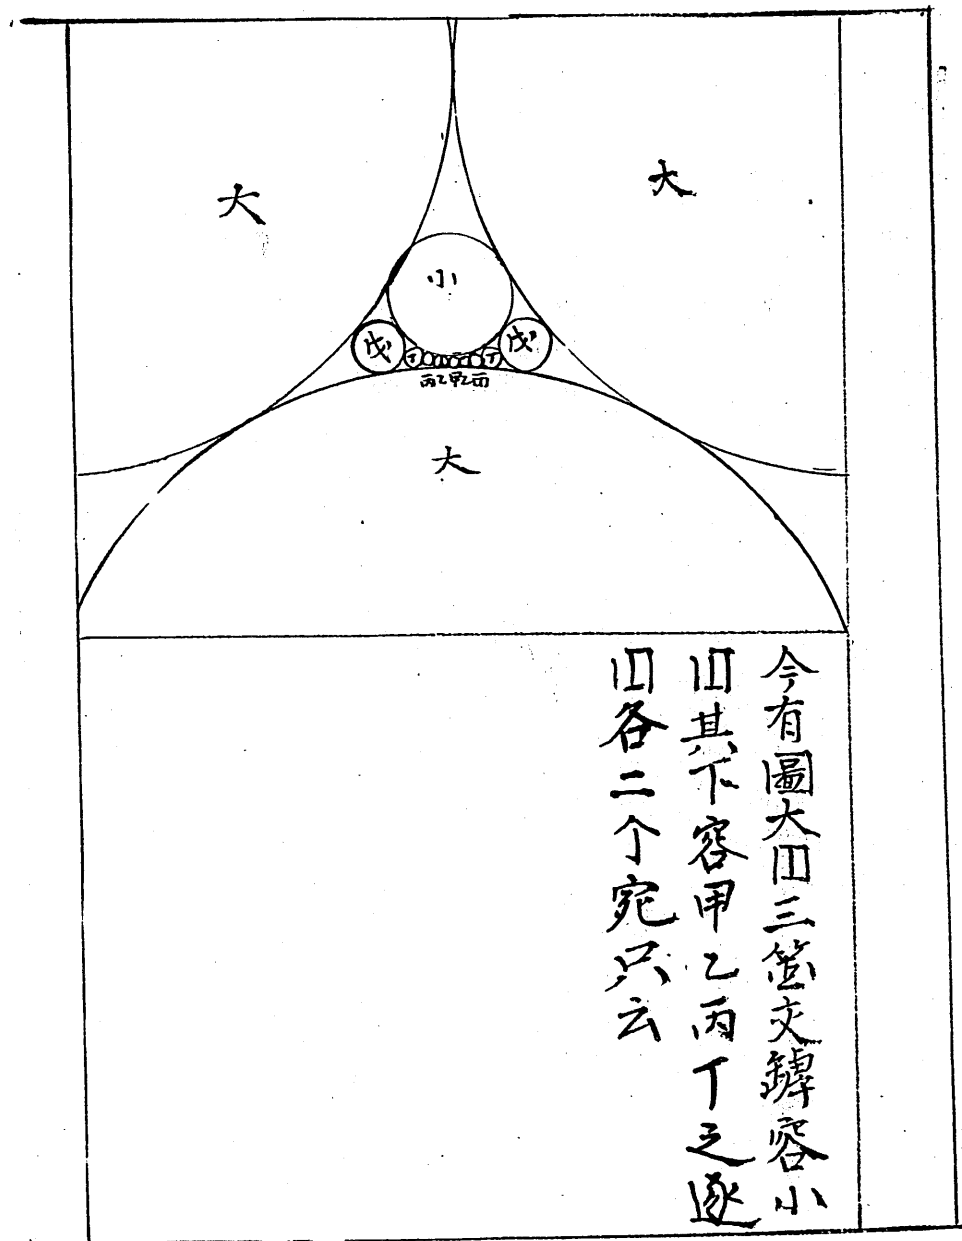 大
大
小
戊
戊
丁
丁
丙乙甲乙丙
大
今有圖大円三箇交罅容小
円其下容甲乙丙丁之逐
円各二个宛只云